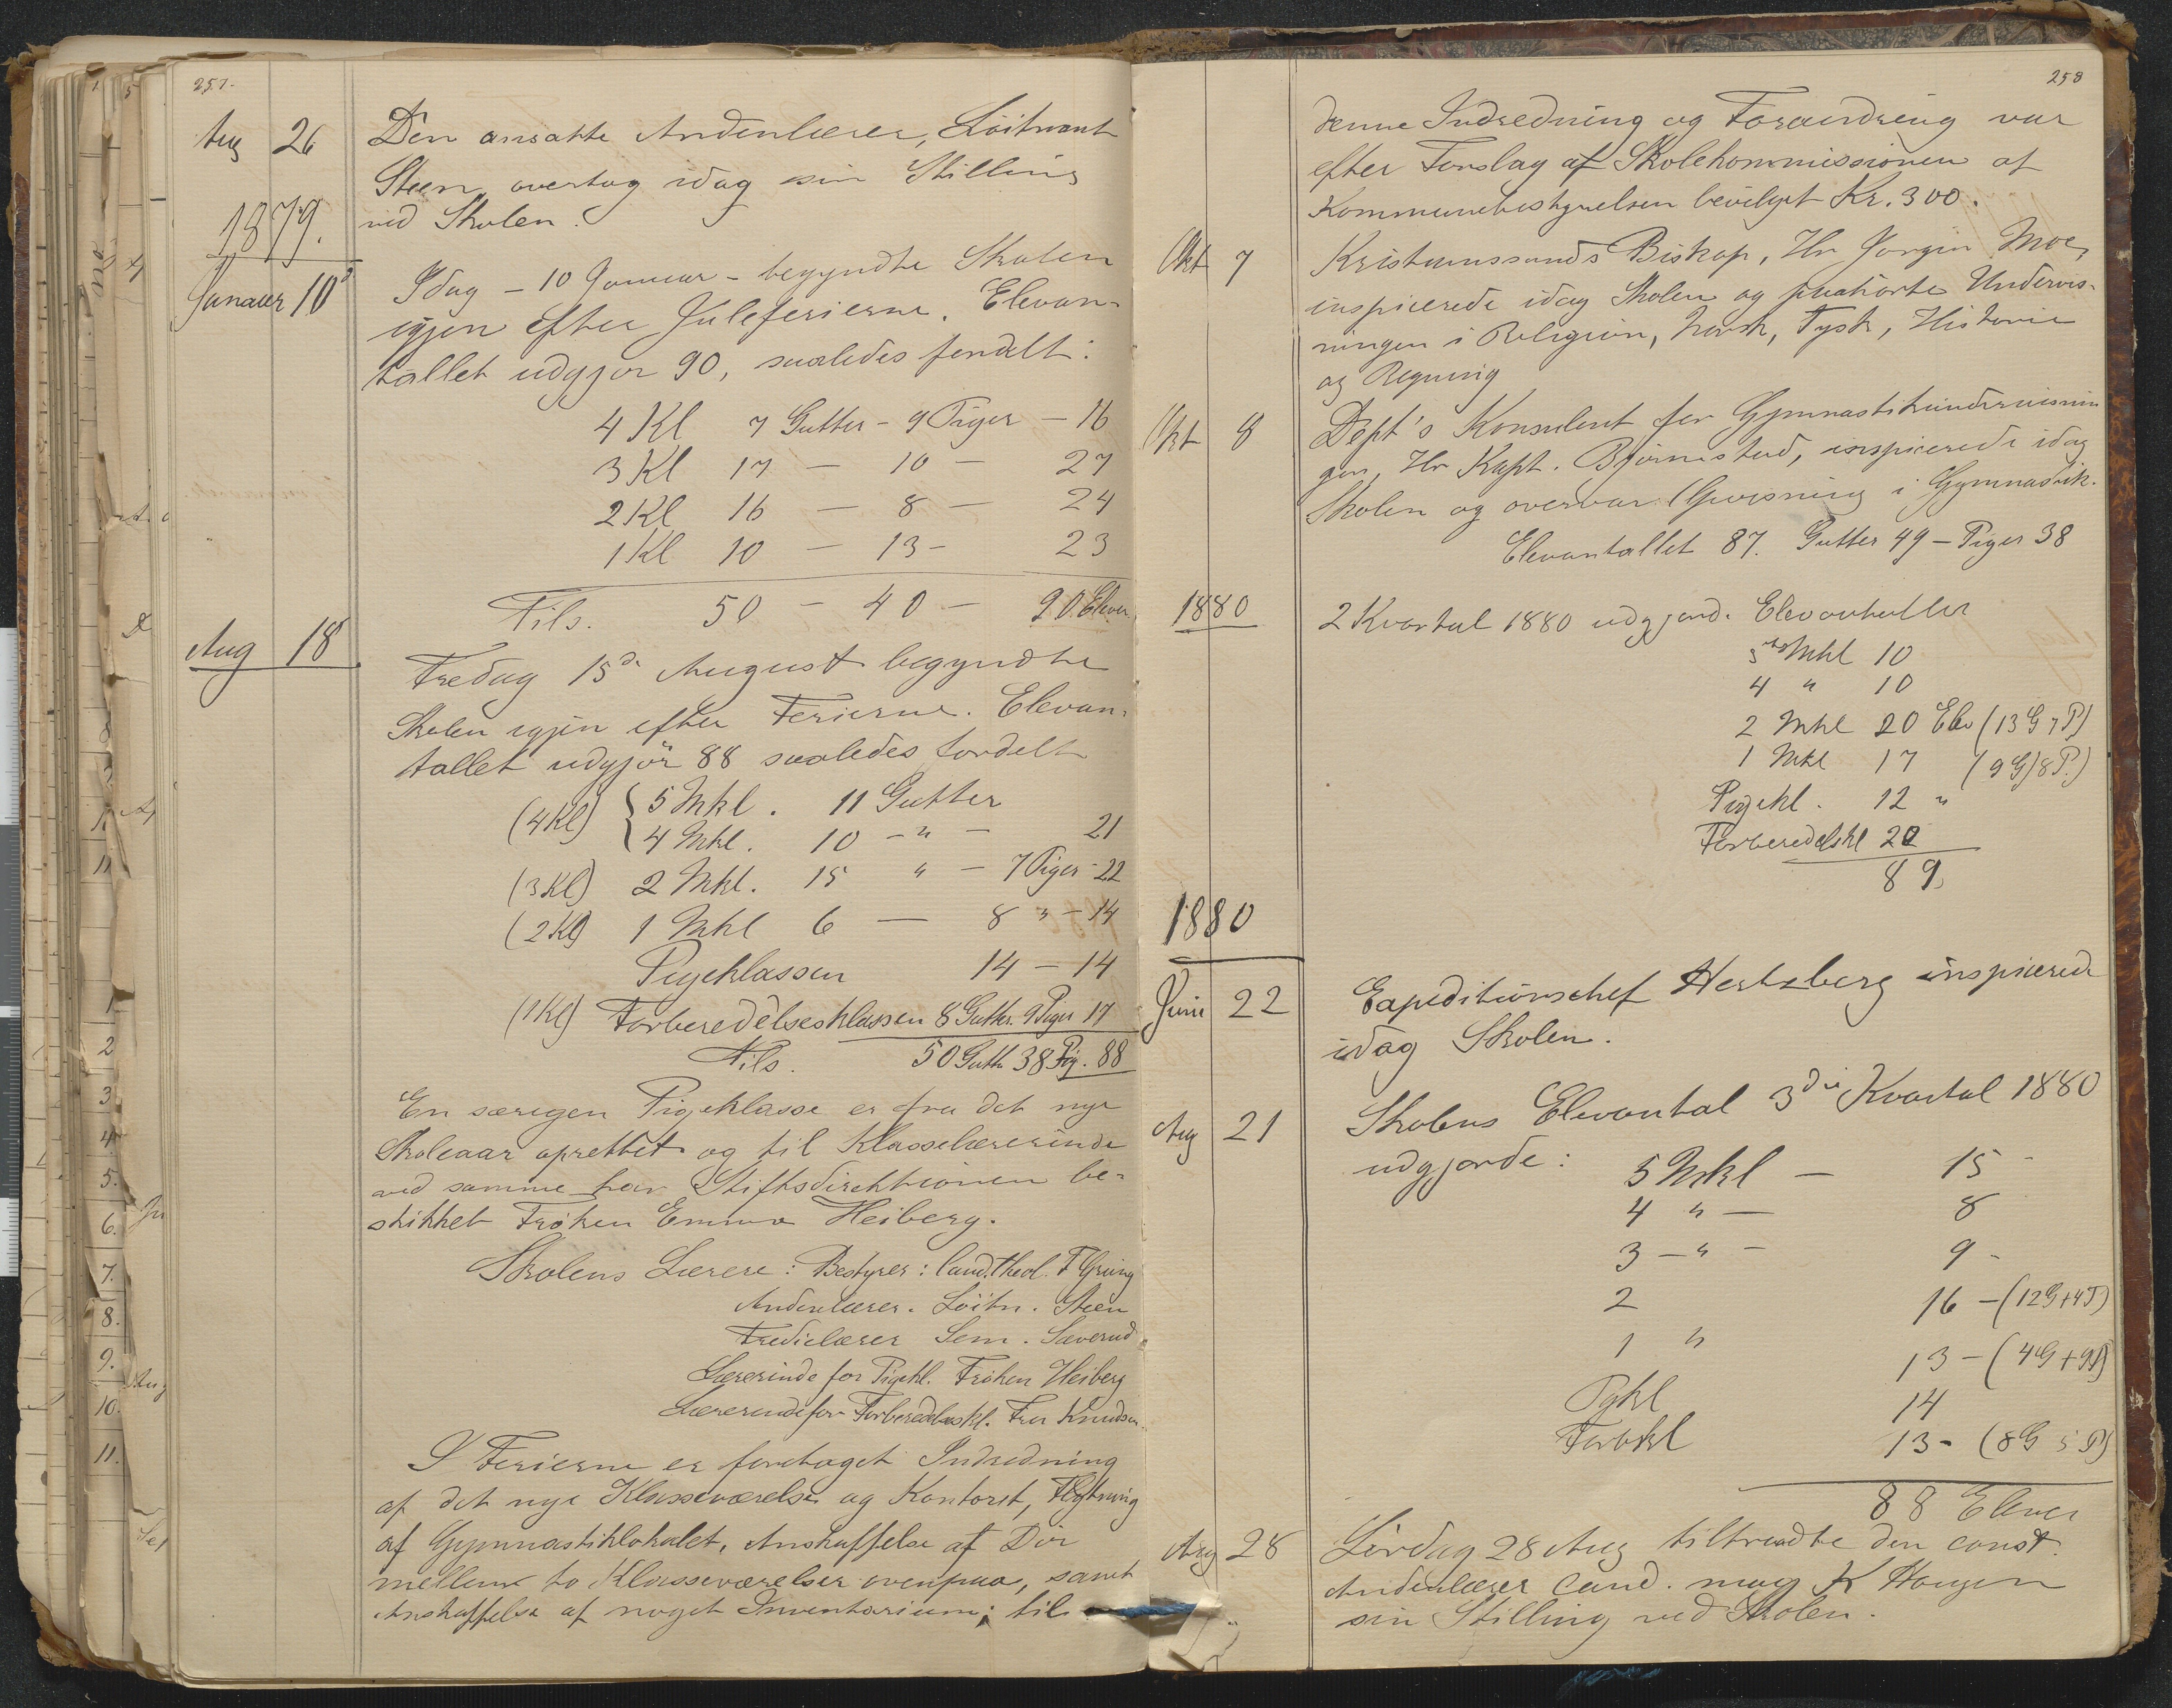 257.
Aug 26
Den ansatte Andenlærer, Löitnant
Steen, overtog idag sin Stilling
ved Skolen.
1879.
Januar 10d
Idag - 10 Januar - begyndte Skolen
igjen efter Juleferierne. Elevan-
tallet udgjør 90, saaledes fordelt:
4 Kl 7 Gutter - 9 Piger - 16
3 Kl 17 - 10 - 27
2 Kl 16 - 8 - 24
1 Kl 10 - 13 - 23
Tils. 50 - 40 - 90 Elever
Aug 18
Fredag 15d August begyndte
Skolen igjen efter Ferierne. Elevan-
tallet udgjör 88 saaledes fordelt
(4 Kl) { 5 Mkl. 11 Gutter
4 Mkl. 10 - " - 21
(3 Kl) 2 Mkl. 15 " - 7 Piger - 22
(2 Kl) 1 Mkl 6 - 8 " - 14
Pigeklassen 14 - 14
(1 Kl) Forberedelsesklassen 8 Gutter. 9 Piger 17
Tils. 50 Gutt. 38 Pig. 88
En særegen Pigeklasse er fra det nye
Skoleaar oprettet og til Klasselærerinde
ved samme har Stiftsdirektionen be-
skikket Frøken Emma Heiberg.
Skolens Lærere: Bestyrer: Cand. theol. F Grung
Andenlærer. Löitn. Steen
Tredielærer Sem. Saverud
Lærerinde for Pigekl. Frøken Heiberg
Lærerinde for Forberedelseskl. Fru Knudsen
I Ferierne er foretaget Indredning
af det nye Klasseværelse og Kontoret, Flytning
af Gymnastiklokalet, Anskaffelse af Dör
mellem to Klasseværelser ovenpaa, samt
Anskaffelse af noget Inventarium; til
258
denne Indredning og Forandring var
efter Forslag af Skolekommissionen af
Kommunebestyrelsen bevilget Kr. 300.
Okt 7
Kristianssands Biskop, Hr Jørgen Moe,
inspicerede idag Skolen og paahørte Undervis-
ningen i Religion, Norsk, Tysk, Historie
og Regning
Okt 8
Dept's Konsulent for Gymnastikundervisnin
gen, Hr Kapt. Bjørnstad, inspicerede idag
Skolen og overvar Opvisning i Gymnastik.
Elevantallet 87. Gutter 49 - Piger 38
1880
2 Kvartal 1880 udgjord. Elevantallet
5 Mkl 10
4 " 10
2 Mkl 20 Elev (13 G 7 P)
1 Mkl 17 (9 G) 8 P.)
Pigekl. 12 "
Forberedelskl 20
89
1880
Juni 22
Expeditionschef Hertzberg inspicerede
idag Skolen.
Aug 21
Skolens Elevantal 3die Kvartal 1880
udgjorde: 5 Mkl - 15 -
4 " - 8
3 - " - 9 -
2 16 - (12 G + 4 P)
1 " 13 - (4 G + 9 P)
Pgkl 14
Forbkl 13 - (8 G 5 P)
88 Elever
Aug 28
Lördag 28 Aug tiltraadte den const.
Andenlærer Cand. mag K Haugen
sin Stilling ved Skolen.